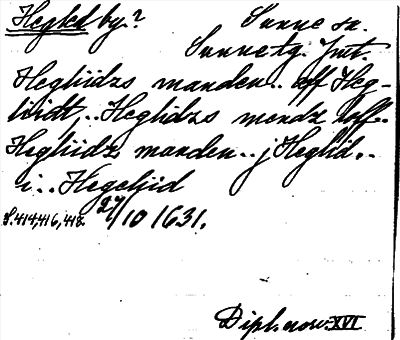 Hegled by? Sunne sn.
Sunnetg. Jmt.
Hegliidzs manden.. aff Heg-
liidt,.. Heglidzs mendz aff..
Hegliidz manden.. j Heglid..
i.. Hegeliid
S. 414, 416, 418. 27/10 1631.
Dipl. norv. XVI